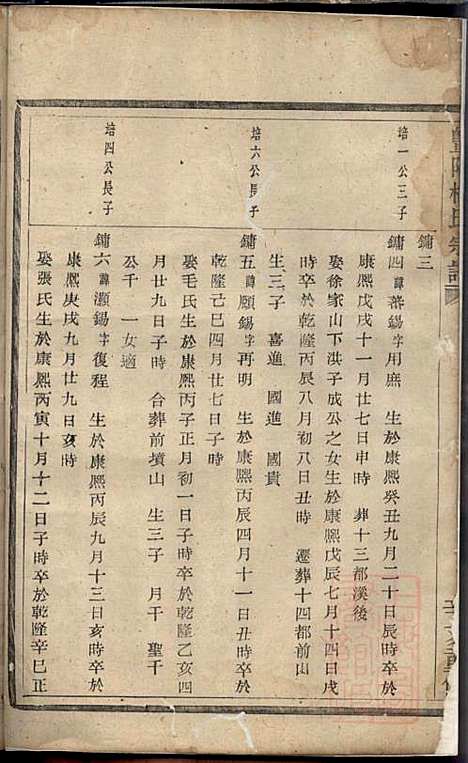 鏞三
培一公三子
鏞四諱蕃錫字用庶 生於康熙癸丑九月二十日辰時卒於
康熙戊戌十一月廿七日申時 葬十三都漢後
娶徐家山下洪子成公之女生於康熙戊辰七月十四日戌
時卒於乾隆丙辰八月初八日丑時 遷葬十四都前山
生三子 喜進 國進 國貴
培六公長子
鏞五諱願錫字再明 生於康熙丙辰四月十一日丑時卒於
乾隆己巳四月廿七日子時
娶毛氏生於康熙丙子正月初一日子時卒於乾隆乙亥四
月廿九日子時 合葬前墳山 生三子 月千 聖千
公千 一女適
培四公長子
鏞六諱灝錫字復程 生於康熙丙辰九月十三日亥時卒於
康熙庚戌九月廿九日亥時
娶張氏生於康熙丙寅十月十二日子時卒於乾隆辛巳正